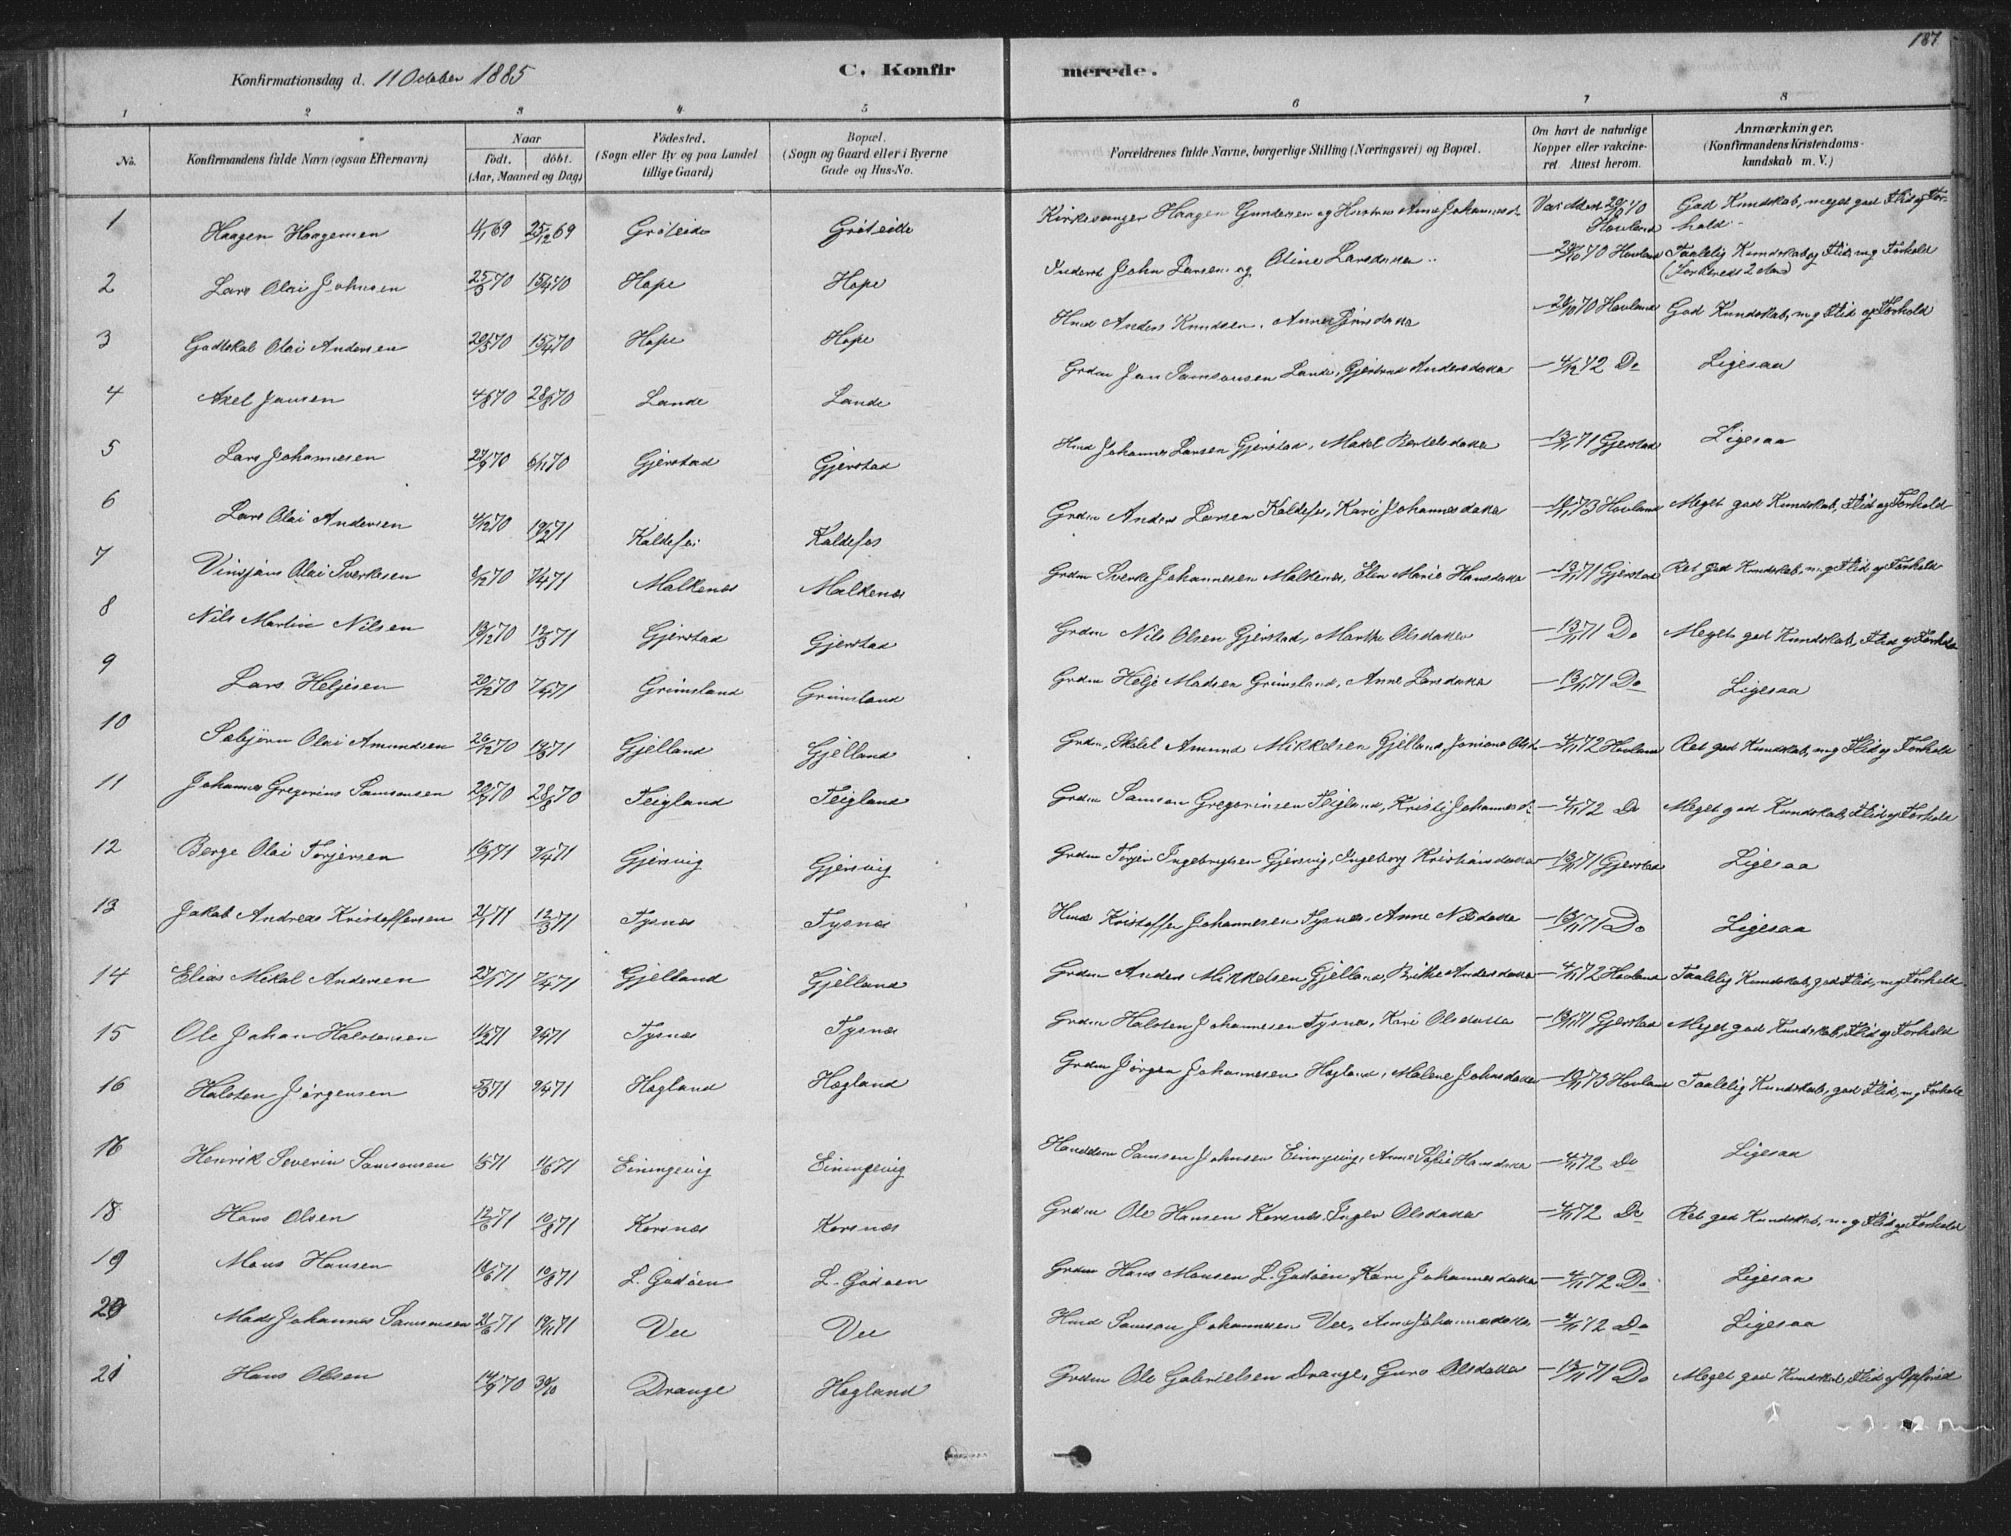 187
Konfirmationsdag d. 11 October 1885
C. Konfirmerede.
1 2 3 4 5 6 7 8
No.
Konfirmandens fulde Navn (ogsaa Efternavn)
Naar
født. døbt.
(Aar, Maaned og Dag)
Fødested.
(Sogn eller By og paa Landet
tillige Gaard)
Bopæl.
(Sogn og Gaard eller i Byerne
Gade og Hus-No.
Forældrenes fulde Navne, borgerlige Stilling (Næringsvei) og Bopæl.
Om havt de naturlige
Kopper eller vakcine-
ret. Attest herom.
Anmærkninger.
(Konfirmandens Kristendoms-
kundskab m. V.)
1 Haagen Haagensen 4/1 69 25/12 69 Gröteide Gröteide Kirkesanger Haagen Gundersen og Hustru Anne Johannesd. Vac Attest 70 Hovland God Kundskab, meget god Flid og Forhold
2 Lars Olai Johnsen 25/3 70 15/4 70 Hope Hope Inderst John Larsen og Oline Larsdatter 70 Hovland Taalelig Kundskab og Flid, mg Forhold
3 Godtskalk Olai Andersen 70 15/4 70 Hope Hope Hmd Anders Knudsen, Anne 70 Hovland God Kundskab, mg Flid og Forhold
4 Axel Jansen 4/8 70 28/8 70 Lande Lande Grdm Jan Samsonsen Lande, Gjertrud Andersdatter 72 Do Ligesaa
5 Lars Johannesen 27/9 70 6/11 70 Gjerstad Gjerstad Hmd Johannes Larsen Gjerstad, Madel Bertelsdatter 13/11 71 Gjerstad Ligesaa
6 Lars Olai Andersen 4/12 70 19/2 71 Kaldefos Kaldefos Grdm Anders Larsen Kaldefos, Kari Johannesdatter 73 Hovland Meget god Kundskab, Flid og Forhold
7 Vinsjans Olai Sverkesen 8/12 70 7/4 71 Malkenes Malkenes Grdm Sverke Johannesen Malkenes, Elen Marie Hansdatter 13/11 71 Gjerstad Ret god Kundskab, mg Flid og Forhold
8 Nils Martin Nilsen 13/12 70 12/3 71 Gjerstad Gjerstad Grdm Nils Olsen Gjerstad, Marthe Olsdatter 13/11 71 Do Meget god Kundskab, Flid og Forhold
9 Lars Heljesen 20/12 70 7/4 71 Grimsland Grimsland Grdm Helje Madsen Grimsland, Anne Larsdatter 13/11 71 Do Ligesaa
10 Sebjørn Olai Amundsen 26/12 70 71 Gjelland Gjelland Grdm, Skolel Amund Mikkelsen Gjelland, 4/11 72 Hovland Ret god Kundskab, mg Flid og Forhold
11 Johannes Gregorius Samsonsen 70 28/8 70 Teigland Teigland Grdm Samson Gregoriusen Teigland, Kristi Johannesd. 4/11 72 Do Meget god Kundskab, Flid og Forhold
12 Berge Olai Torjersen 16/1 71 9/4 71 Gjersvig Gjersvig Grdm Torjer Ingebrigtsen Gjersvig, Ingeborg Kristiansdatter 13/11 71 Gjerstad Ligesaa
13 Jakob Andreas Kristoffersen 71 12/3 71 Tysnes Tysnes Hmd Kristoffer Johannesen Tysnes, Anne Nilsdatter 13/11 71 Do Ligesaa
14 Elias Mikal Andersen 27/1 71 7/4 71 Gjelland Gjelland Grdm Anders Mikkelsen Gjelland, Brithe Andersdatter 4/11 72 Hovland Taalelig Kundskab, god Flid, mg Forhold
15 Ole Johan Halstensen 71 9/4 71 Tysnes Tysnes Grdm Halsten Johannesen Tysnes, Kari Olsdatter 13/11 71 Gjerstad Meget god Kundskab, Flid og Forhold
16 Halsten Jørgensen 5/3 71 9/4 71 Hogland Hogland Grdm Jørgen Johannesen Hogland, Malene Johnsdatter 73 Hovland Taalelig Kundskab, god Flid, mg Forhold
17 Henrik Severin Samsonsen 71 11/6 71 Einingevig Einingevig Handelsm Samson Johnsen Einingevig, Anne Sofie Hansdatter 4/11 72 Do Ligesaa
18 Hans Olsen 12/6 71 10/8 71 Korsnes Korsnes Grdm Ole Hansen Korsnes, Inger Olsdatter 4/11 72 Do Ret god Kundskab, mg Flid og Forhold
19 Mons Hansen 14/6 71 10/8 71 L. Godøen L. Godøen Grdm Hans Monsen L. Godøen, Kari Johannesdatter 4/11 72 Do Ligesaa
20 Mads Johannes Samsonsen 71 71 Vee Vee Hmd Samson Johannesen Vee, Anne Johannesdatter 72 Do Ligesaa
21 Hans Olsen 14/9 70 Drange Hogland Grdm Ole Gabrielsen Drange, Guro Olsdatter 13/11 71 Do Meget god Kundskab, Flid og Opførsel